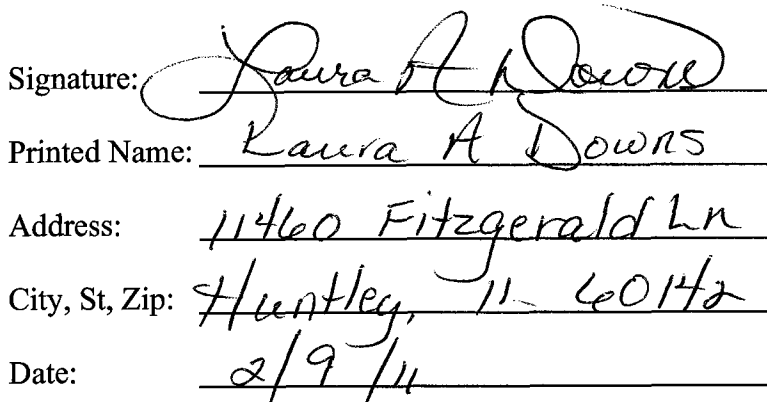 Signature: Laura A Downs
Printed Name: Laura A Downs
Address: 11460 Fitzgerald Ln
City, St, Zip: Huntley, Il 60142
Date: 2/9/11